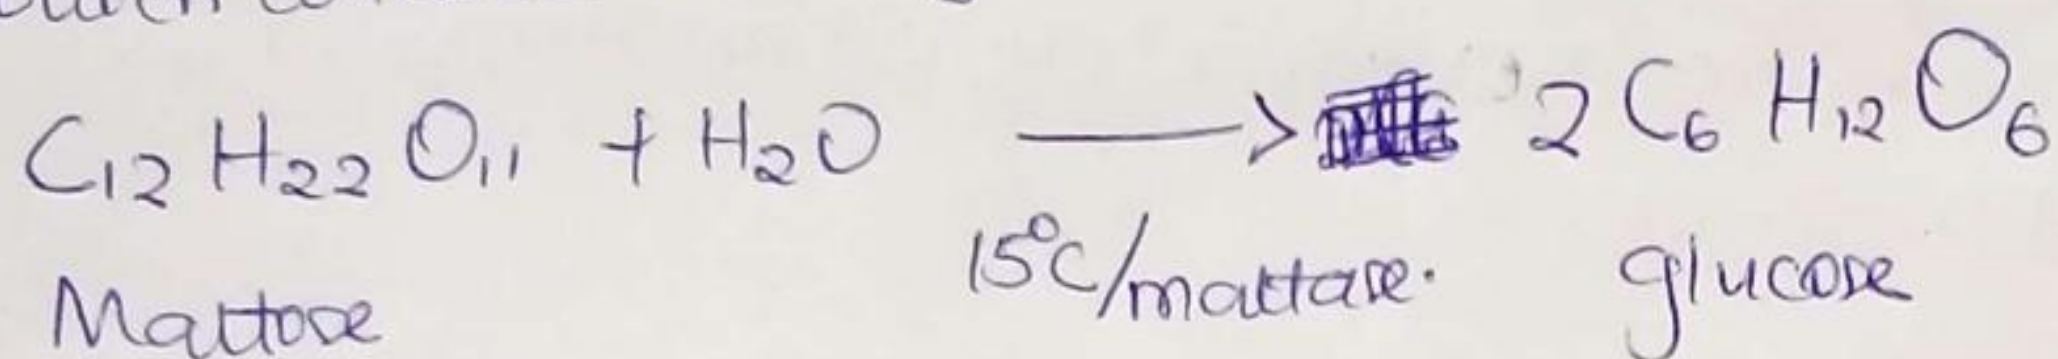 C₁₂H₂₂O₁₁ + H₂O ⟶ 2C₆H₁₂O₆
15°C/maltase.
Maltose glucose